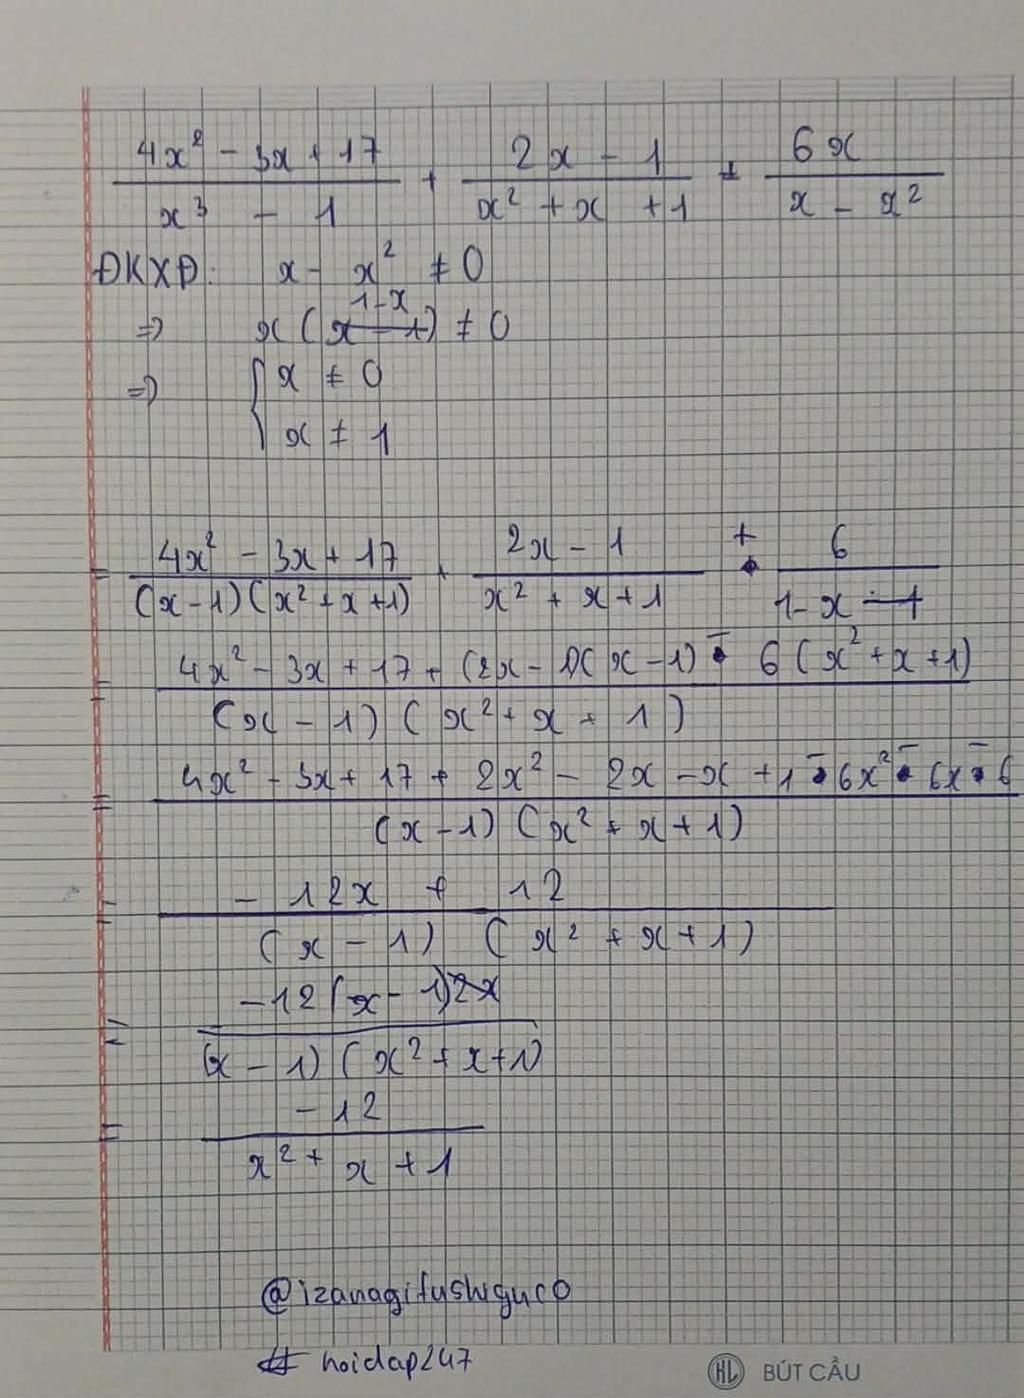 4x² - 3x + 17 / x³ - 1 + 2x - 1 / x² + x + 1 + 6x / x - x²
ĐKXĐ: x - x² ≠ 0
=) x(1-x) ≠ 0
=) { x ≠ 0
x ≠ 1
= 4x² - 3x + 17 / (x-1)(x²+x+1) + 2x - 1 / x² + x + 1 + 6 / 1-x
= 4x² - 3x + 17 + (2x - 1)(x - 1) - 6(x² + x + 1) / (x - 1)(x² + x + 1)
= 4x² - 3x + 17 + 2x² - 2x - x + 1 - 6x² - 6x - 6 / (x-1)(x² + x + 1)
= - 12x + 12 / (x - 1)(x² + x + 1)
= -12(x - 1) / (x - 1)(x² + x + 1)
= -12 / x² + x + 1
@izanagifushiguro
# hoidap247
HL BÚT CẦU